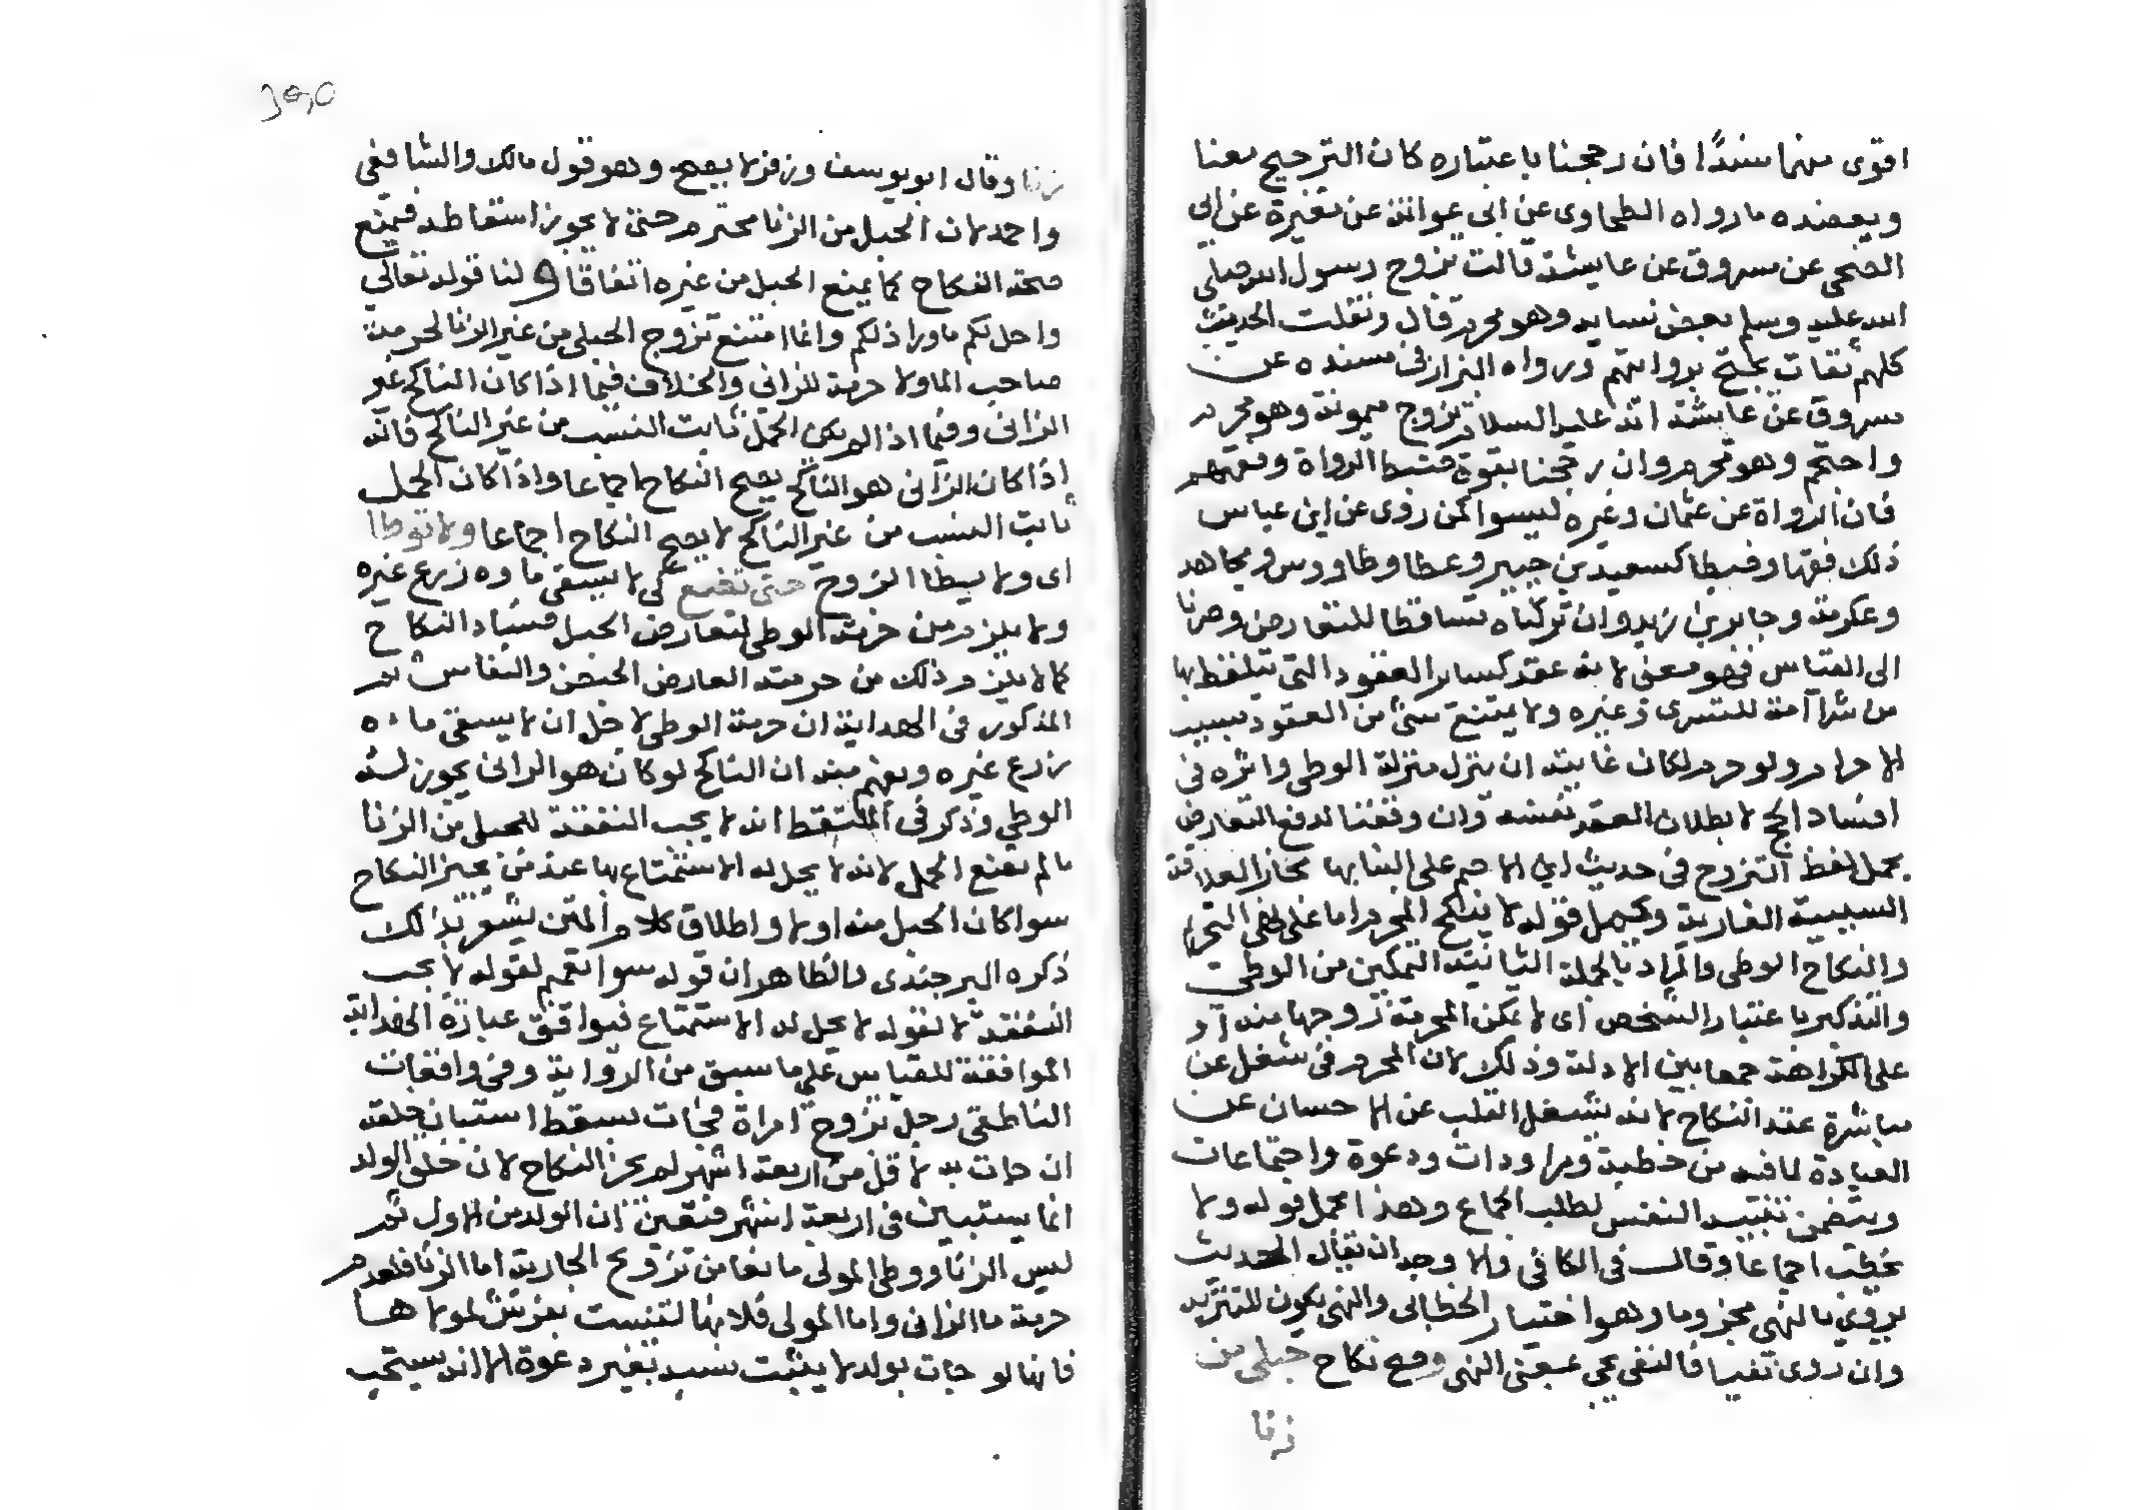 اقوى منهما سندا فان رجحنا باعتباره كان الترجيح معنا
ويعضده ما رواه الطحاوى عن ابى عوانة عن مغيرة عن ابى
الضحى عن مسروق عن عايشة قالت تزوج رسول الله صلى
الله عليه وسلم بعض نسايه وهو محرم قال ونقلت الحديث
كلهم ثقات يحتج بروايتهم ورواه البزار فى مسنده عن
مسروق عن عايشة انه عليه السلام تزوج ميمونة وهو محرم
واحتجم وهو محرم وان رجحنا بقوة ضبط الرواة وفقههم
فان الرواة عن عثمان وغيره ليسوا كمن روى عن ابن عباس
ذلك فقها وضبطا كسعيد بن جبير وعطا وطاووس ومجاهد
وعكرمة وجابر بن زيد وان تركناه تساقطا للتعارض وصرنا
الى القياس فهو معنى لانه عقد كساير العقود التى يتلفظ بها
من شرا امة للتسرى وغيره ولا يمتنع شى من العقود بسبب
الاحرام ولو حرم لكان غايته ان ينزل منزلة الوطى واثره فى
افساد الحج لا بطلان العقد نفسه وان وفقنا لدفع التعارض
يحمل لفظ التزوج فى حديث ابن الاصم على البنا بها مجازا لعلاقة
السببية العادية ويحمل قوله لا ينكح المحرم اما على نهى التحريم
والنكاح الوطى والمراد بالجملة الثانية التمكين من الوطى
والتذكير باعتبار الشخص اى لا تمكن المحرمة زوجها منه او
على الكراهة جمعا بين الادلة وذلك لان المحرم فى شغل عن
مباشرة عقد النكاح لانه يشغل القلب عن الاحسان عن
العبادة لما فيه من خطبة ومراودات ودعوة واجتماعات
ويتضمن تنبيه النفس لطلب الجماع وهذا محمل قوله ولا
يخطب اجماعا وقال فى الكافى والاوجه ان يقال الحديث
يروى بالنهى مجزوما وهو اختيار الخطابى والنهى يكون للتنزيه
وان روى نفيا فالنفى يجى بمعنى النهى وصح نكاح حبلى من
زنا
زنا وقال ابو يوسف وزفر لا يصح وهو قول مالك والشافعى
واحمد لان الحبل من الزنا محترم حتى لا يجوز اسقاطه فيمنع
صحة النكاح كما يمنع الحبل من غيره اتفاقا ولنا قوله تعالى
واحل لكم ما ورا ذلكم وانما امتنع تزوج الحبلى من غير الزنا لحرمة
صاحب الما ولا حرمة للزانى والخلاف فيما اذا كان الناكح غير
الزانى وفيما اذا لم يكن الحمل ثابت النسب من غير الناكح فانه
اذا كان الزانى هو الناكح يصح النكاح اجماعا واذا كان الحمل
ثابت النسب من غير الناكح لا يصح النكاح اجماعا ولا توطا
اى ولا يطا الزوج حتى تضع كى لا يسقى ماوه زرع غيره
ولا يلزم من حرمة الوطى لتعارض الحبل فساد النكاح
كما لا يلزم ذلك من حرمته لعارض الحيض والنفاس ثم
المذكور فى الهداية ان حرمة الوطى لاجل ان لا يسقى ماءه
زرع غيره ويفهم منه ان الناكح لو كان هو الزانى يجوز له
الوطى وذكر فى الملتقط انه لا يجب النفقة للحبلى من الزنا
ما لم تضع الحمل لانه لا يحل له الاستمتاع بها عند من يجيز النكاح
سوا كان الحبل منه او لا واطلاق كلام المتن يشعر بذلك
ذكره البرجندى والظاهر ان قوله سوا تعميم لقوله لا يجب
النفقة لا لقوله لا يحل له الاستمتاع فيوافق عبارة الهداية
الموافقة للقياس على ما سبق من الرواية وفى واقعات
الناطفى رجل تزوج امراة فجات بسقط استبان خلقه
ان جات به لاقل من اربعة اشهر لم يجز النكاح لان خلق الولد
انما يستبين فى اربعة اشهر فتعين ان الولد من الاول ثم
ليس الزنا ووطى المولى مانعا من تزويج الجارية اما الزنا فلعدم
حرمة ما الزانى واما المولى فلانها ليست بفراش لمولاها
فانها لو جات بولد لا يثبت نسبه بغير دعوة الا انه يستحب